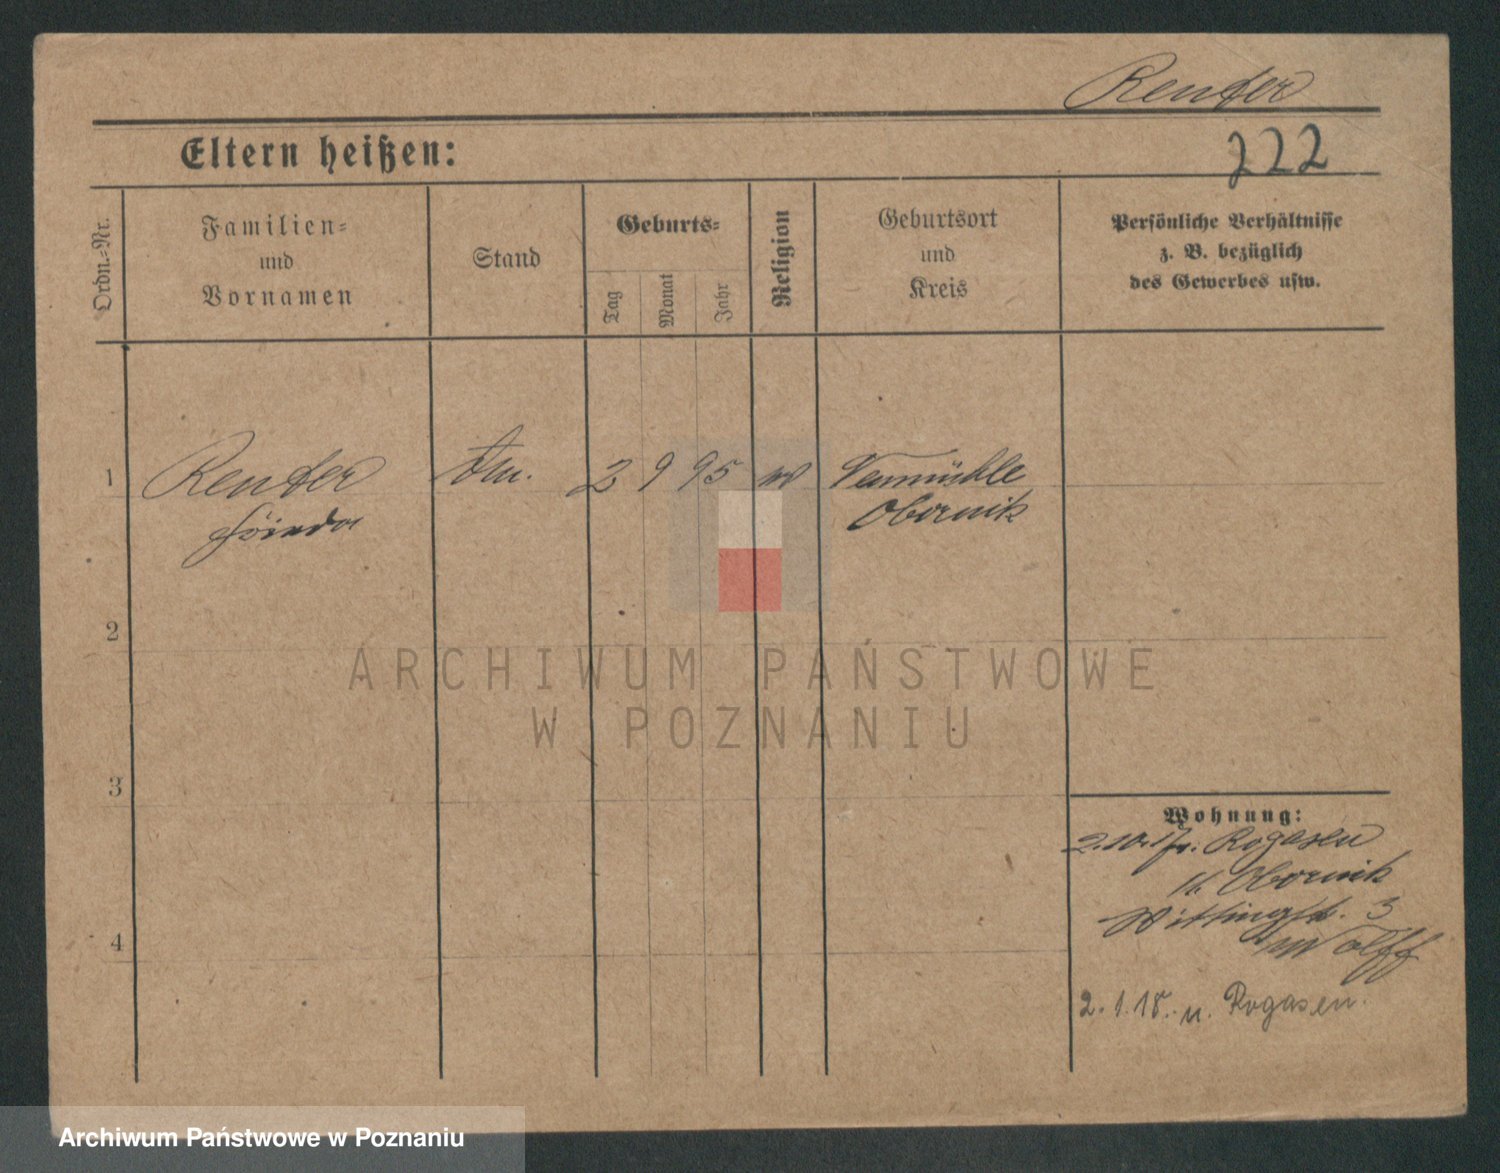 Renter
Eltern heißen:
222
Ordn.-Nr.
Familien-
und
Vornamen
Stand
Geburts-
Tag
Monat
Jahr
Religion
Geburtsort
und
Kreis
Persönliche Verhältnisse
z. B. bezüglich
des Gewerbes usw.
1
Renter
Frieda
2 9 95
Neumühle
Obornik
2
ARCHIWUM PAŃSTWOWE
W POZNANIU
3
Wohnung:
2.10.17. Rogasen
Obornik
3
Wolff
4
2.1.18. n. Rogasen.
Archiwum Państwowe w Poznaniu